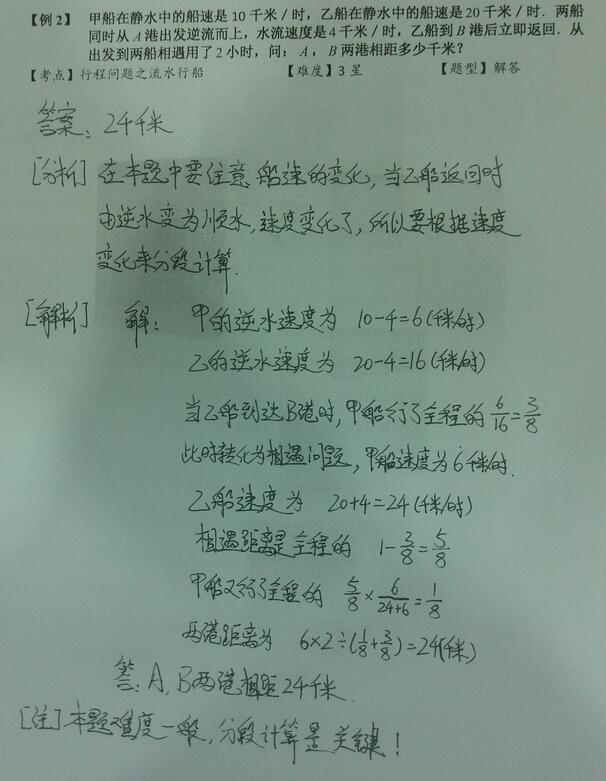 【例 2】 甲船在静水中的船速是 10 千米／时，乙船在静水中的船速是 20 千米／时．两船
同时从 A 港出发逆流而上，水流速度是 4 千米／时，乙船到 B 港后立即返回．从
出发到两船相遇用了 2 小时，问：A ，B 两港相距多少千米？
【考点】行程问题之流水行船 【难度】3 星 【题型】解答
答案：24千米
[分析] 在本题中要注意，船速的变化，当乙船返回时
由逆水变为顺水，速度变化了，所以要根据速度
变化来分段计算.
[解析] 解： 甲的逆水速度为 10-4=6(千米/时)
乙的逆水速度为 20-4=16(千米/时)
当乙船到达B港时，甲船行了全程的 6/16=3/8
此时转化为相遇问题，甲船速度为6千米/时.
乙船速度为 20+4=24(千米/时)
相遇距离是全程的 1-3/8=5/8
甲船又行了全程的 5/8×6/24+6=1/8
两港距离为 6×2÷(1/8+3/8)=24(千米)
答：A，B两港相距24千米.
[注] 本题难度一般，分段计算是关键！